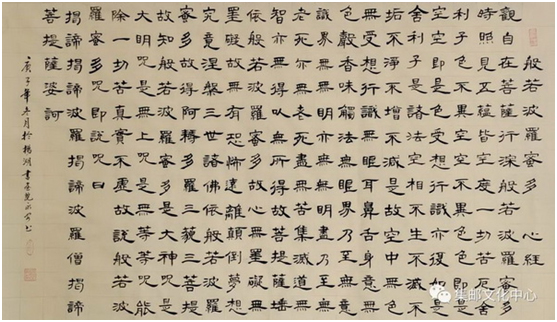 般若波羅蜜多 心經
觀自在菩薩行深般若波羅蜜多
時照見五蘊皆空度一切苦厄舍
利子色不異空空不異色色即是
空空即是色受想行識亦復如是
舍利子是諸法空相不生不滅不
垢不淨不增不減是故空中無色
無受想行識無眼耳鼻舌身意無
色聲香味觸法無眼界乃至無意
識界無無明亦無無明盡乃至無
老死亦無老死盡無苦集滅道無
智亦無得以無所得故菩提薩埵
依般若波羅蜜多故心無罣礙無
罣礙故無有恐怖遠離顛倒夢想
究竟涅槃三世諸佛依般若波羅
蜜多故得阿耨多羅三藐三菩提
故知般若波羅蜜多是大神咒是
大明咒是無上咒是無等等咒能
除一切苦真實不虛故說般若波
羅蜜多咒即說咒曰
揭諦揭諦波羅揭諦波羅僧揭諦
菩提薩婆訶
庚子年冬月於
集邮文化中心